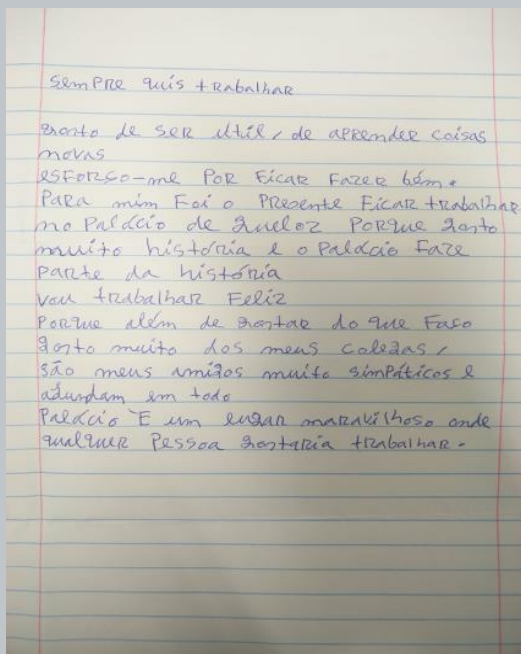 Sempre quis trabalhar
gosto de ser útil, de aprender coisas
novas
esforso-me por ficar fazer bém.
Para mim foi o presente ficar trabalhar
no palácio de queloz porque gosto
muito história e o palácio faze
parte da história
vou trabalhar feliz
porque além de gostar do que faso
gosto muito dos meus colegas,
são meus amigos muito simpáticos e
adundam em todo
Palácio É um lugar maravilhoso onde
qualquer pessoa gostaria trabalhar.